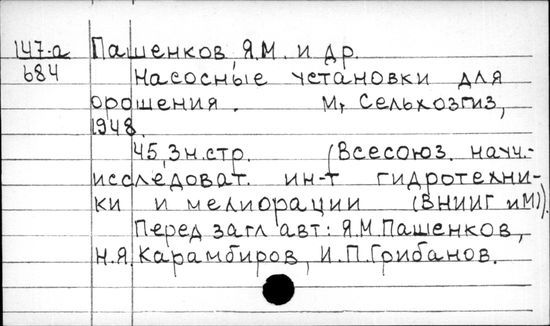 147-а Пашенков, Я.М. и др.
684 Насосные установки для
орошения. М, Сельхозгиз,
1948.
45, 3 н.стр. (Всесоюз. научн.-
исследоват. ин-т гидротехни-
ки и мелиорации (ВНИИГиМ)).
Перед загл авт: Я.М.Пашенков,
Н.Я.Карамбиров, И.П.Грибанов.